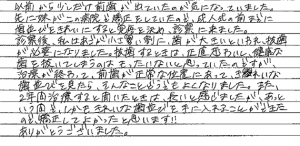 以前から少しだけ前歯が出ていたのが気になっていました。
先に妹がこの病院で矯正をしていたのと、成人式の前までに
歯並びをきれいにすると覚悟を決め、診察に来ました。
診察後、私はあごが小さく、歯が大きいという為、抜歯
が必要でした。抜歯すると聞き、正直こわいし、健康な
歯を抜いてしまうのはもったいないと思っていたのですが、
治療が終わって、前歯が正常な位置にあって、きれいな
歯並びを見たら、そんなことどうでもよくなりました。また、
2年間治療すると聞いたときは、長いと思いましたが、あっと
いう間で、しかもきれいな歯並びを手に入れることが出来た
ので矯正してよかったと思います!!
ありがとうございました。